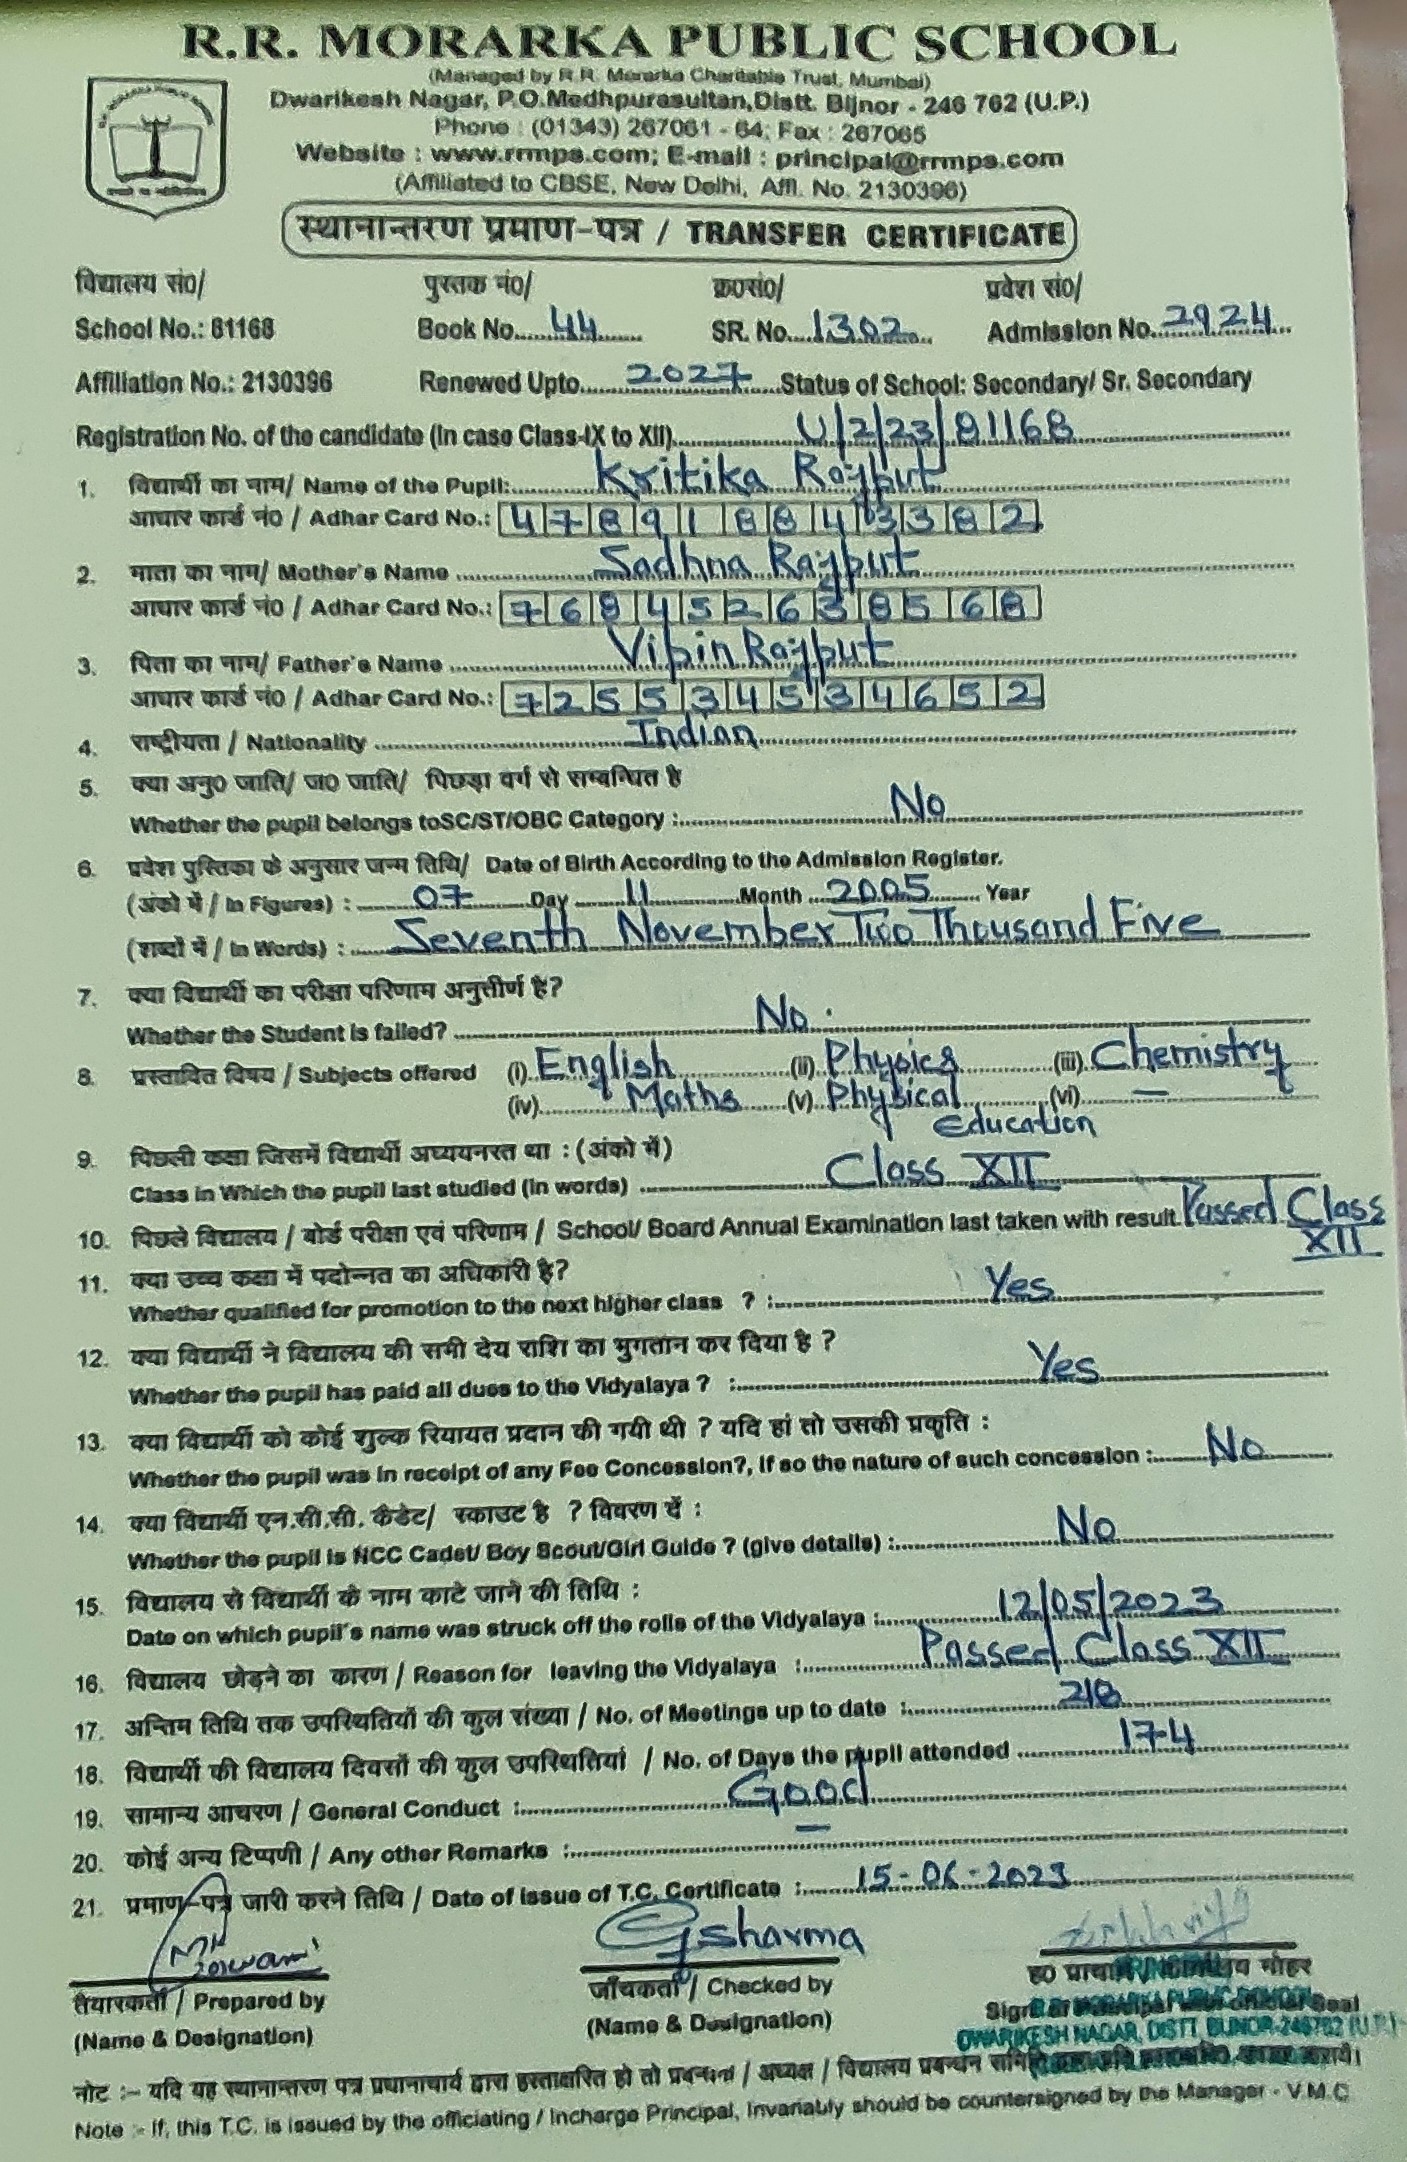 R.R. MORARKA PUBLIC SCHOOL
(Managed by R.R. Morarka Charitable Trust, Mumbai)
Dwarikesh Nagar, P.O.Medhpurasultan,Distt. Bijnor - 246 762 (U.P.)
Phone : (01343) 267061 - 64; Fax : 267065
Website : www.rrmps.com; E-mail : principal@rrmps.com
(Affiliated to CBSE, New Delhi, Affl. No. 2130396)
स्थानान्तरण प्रमाण-पत्र / TRANSFER CERTIFICATE
विद्यालय सं०/ पुस्तक नं०/ क्र०सं०/ प्रवेश सं०/
School No.: 81168 Book No. 44 SR. No. 1302 Admission No. 2924
Affiliation No.: 2130396 Renewed Upto 2027 Status of School: Secondary/ Sr. Secondary
Registration No. of the candidate (In case Class-IX to XII) U/2/23/81168
1. विद्यार्थी का नाम/ Name of the Pupil: Kritika Rajput
आधार कार्ड नं० / Adhar Card No.: 4 7 8 9 1 8 8 4 3 3 8 2
2. माता का नाम/ Mother's Name Sadhna Rajput
आधार कार्ड नं० / Adhar Card No.: 7 6 8 4 5 2 6 3 8 5 6 8
3. पिता का नाम/ Father's Name Vipin Rajput
आधार कार्ड नं० / Adhar Card No.: 7 2 5 5 3 4 5 3 4 6 5 2
4. राष्ट्रीयता / Nationality Indian
5. क्या अनु० जाति/ ज० जाति/ पिछड़ा वर्ग से सम्बन्धित है
Whether the pupil belongs toSC/ST/OBC Category : No
6. प्रवेश पुस्तिका के अनुसार जन्म तिथि/ Date of Birth According to the Admission Register.
(अंको में / In Figures) : 07 Day 11 Month 2005 Year
(शब्दों में / In Words) : Seventh November Two Thousand Five
7. क्या विद्यार्थी का परीक्षा परिणाम अनुत्तीर्ण है?
Whether the Student is failed? No.
8. प्रस्तावित विषय / Subjects offered (i) English (ii) Physics (iii) Chemistry
(iv) Maths (v) Physical (vi) —
Education
9. पिछली कक्षा जिसमें विद्यार्थी अध्ययनरत था : (अंको में)
Class in Which the pupil last studied (in words) Class XII
10. पिछले विद्यालय / बोर्ड परीक्षा एवं परिणाम / School/ Board Annual Examination last taken with result. Passed Class
XII
11. क्या उच्च कक्षा में पदोन्नत का अधिकारी है?
Whether qualified for promotion to the next higher class ? : Yes
12. क्या विद्यार्थी ने विद्यालय की समी देय राशि का भुगतान कर दिया है ?
Whether the pupil has paid all dues to the Vidyalaya ? : Yes
13. क्या विद्यार्थी को कोई शुल्क रियायत प्रदान की गयी थी ? यदि हां तो उसकी प्रकृति :
Whether the pupil was in receipt of any Fee Concession?, If so the nature of such concession : No
14. क्या विद्यार्थी एन.सी.सी. कैडेट/ स्काउट है ? विवरण दें :
Whether the pupil is NCC Cadet/ Boy Scout/Girl Guide ? (give details) : No
15. विद्यालय से विद्यार्थी के नाम काटे जाने की तिथि :
Date on which pupil's name was struck off the rolls of the Vidyalaya : 12/05/2023
16. विद्यालय छोड़ने का कारण / Reason for leaving the Vidyalaya : Passed Class XII
17. अन्तिम तिथि तक उपस्थितियों की कुल संख्या / No. of Meetings up to date : 218
18. विद्यार्थी की विद्यालय दिवसों की कुल उपस्थितियां / No. of Days the pupil attended 174
19. सामान्य आचरण / General Conduct : Good
20. कोई अन्य टिप्पणी / Any other Remarks : —
21. प्रमाण-पत्र जारी करने तिथि / Date of issue of T.C. Certificate : 15-06-2023
Gsharma
तैयारकर्ता / Prepared by जाँचकर्ता / Checked by
(Name & Designation) (Name & Designation)
PRINCIPAL
R.R. MORARKA PUBLIC SCHOOL
DWARIKESH NAGAR, DISTT. BIJNOR-246762 (U.P.)
नोट :- यदि यह स्थानान्तरण पत्र प्रधानाचार्य द्वारा हस्ताक्षरित हो तो प्रबन्धक / अध्यक्ष / विद्यालय प्रबन्धन समिति
Note :- If, this T.C. is issued by the officiating / Incharge Principal, Invariably should be countersigned by the Manager - V.M.C